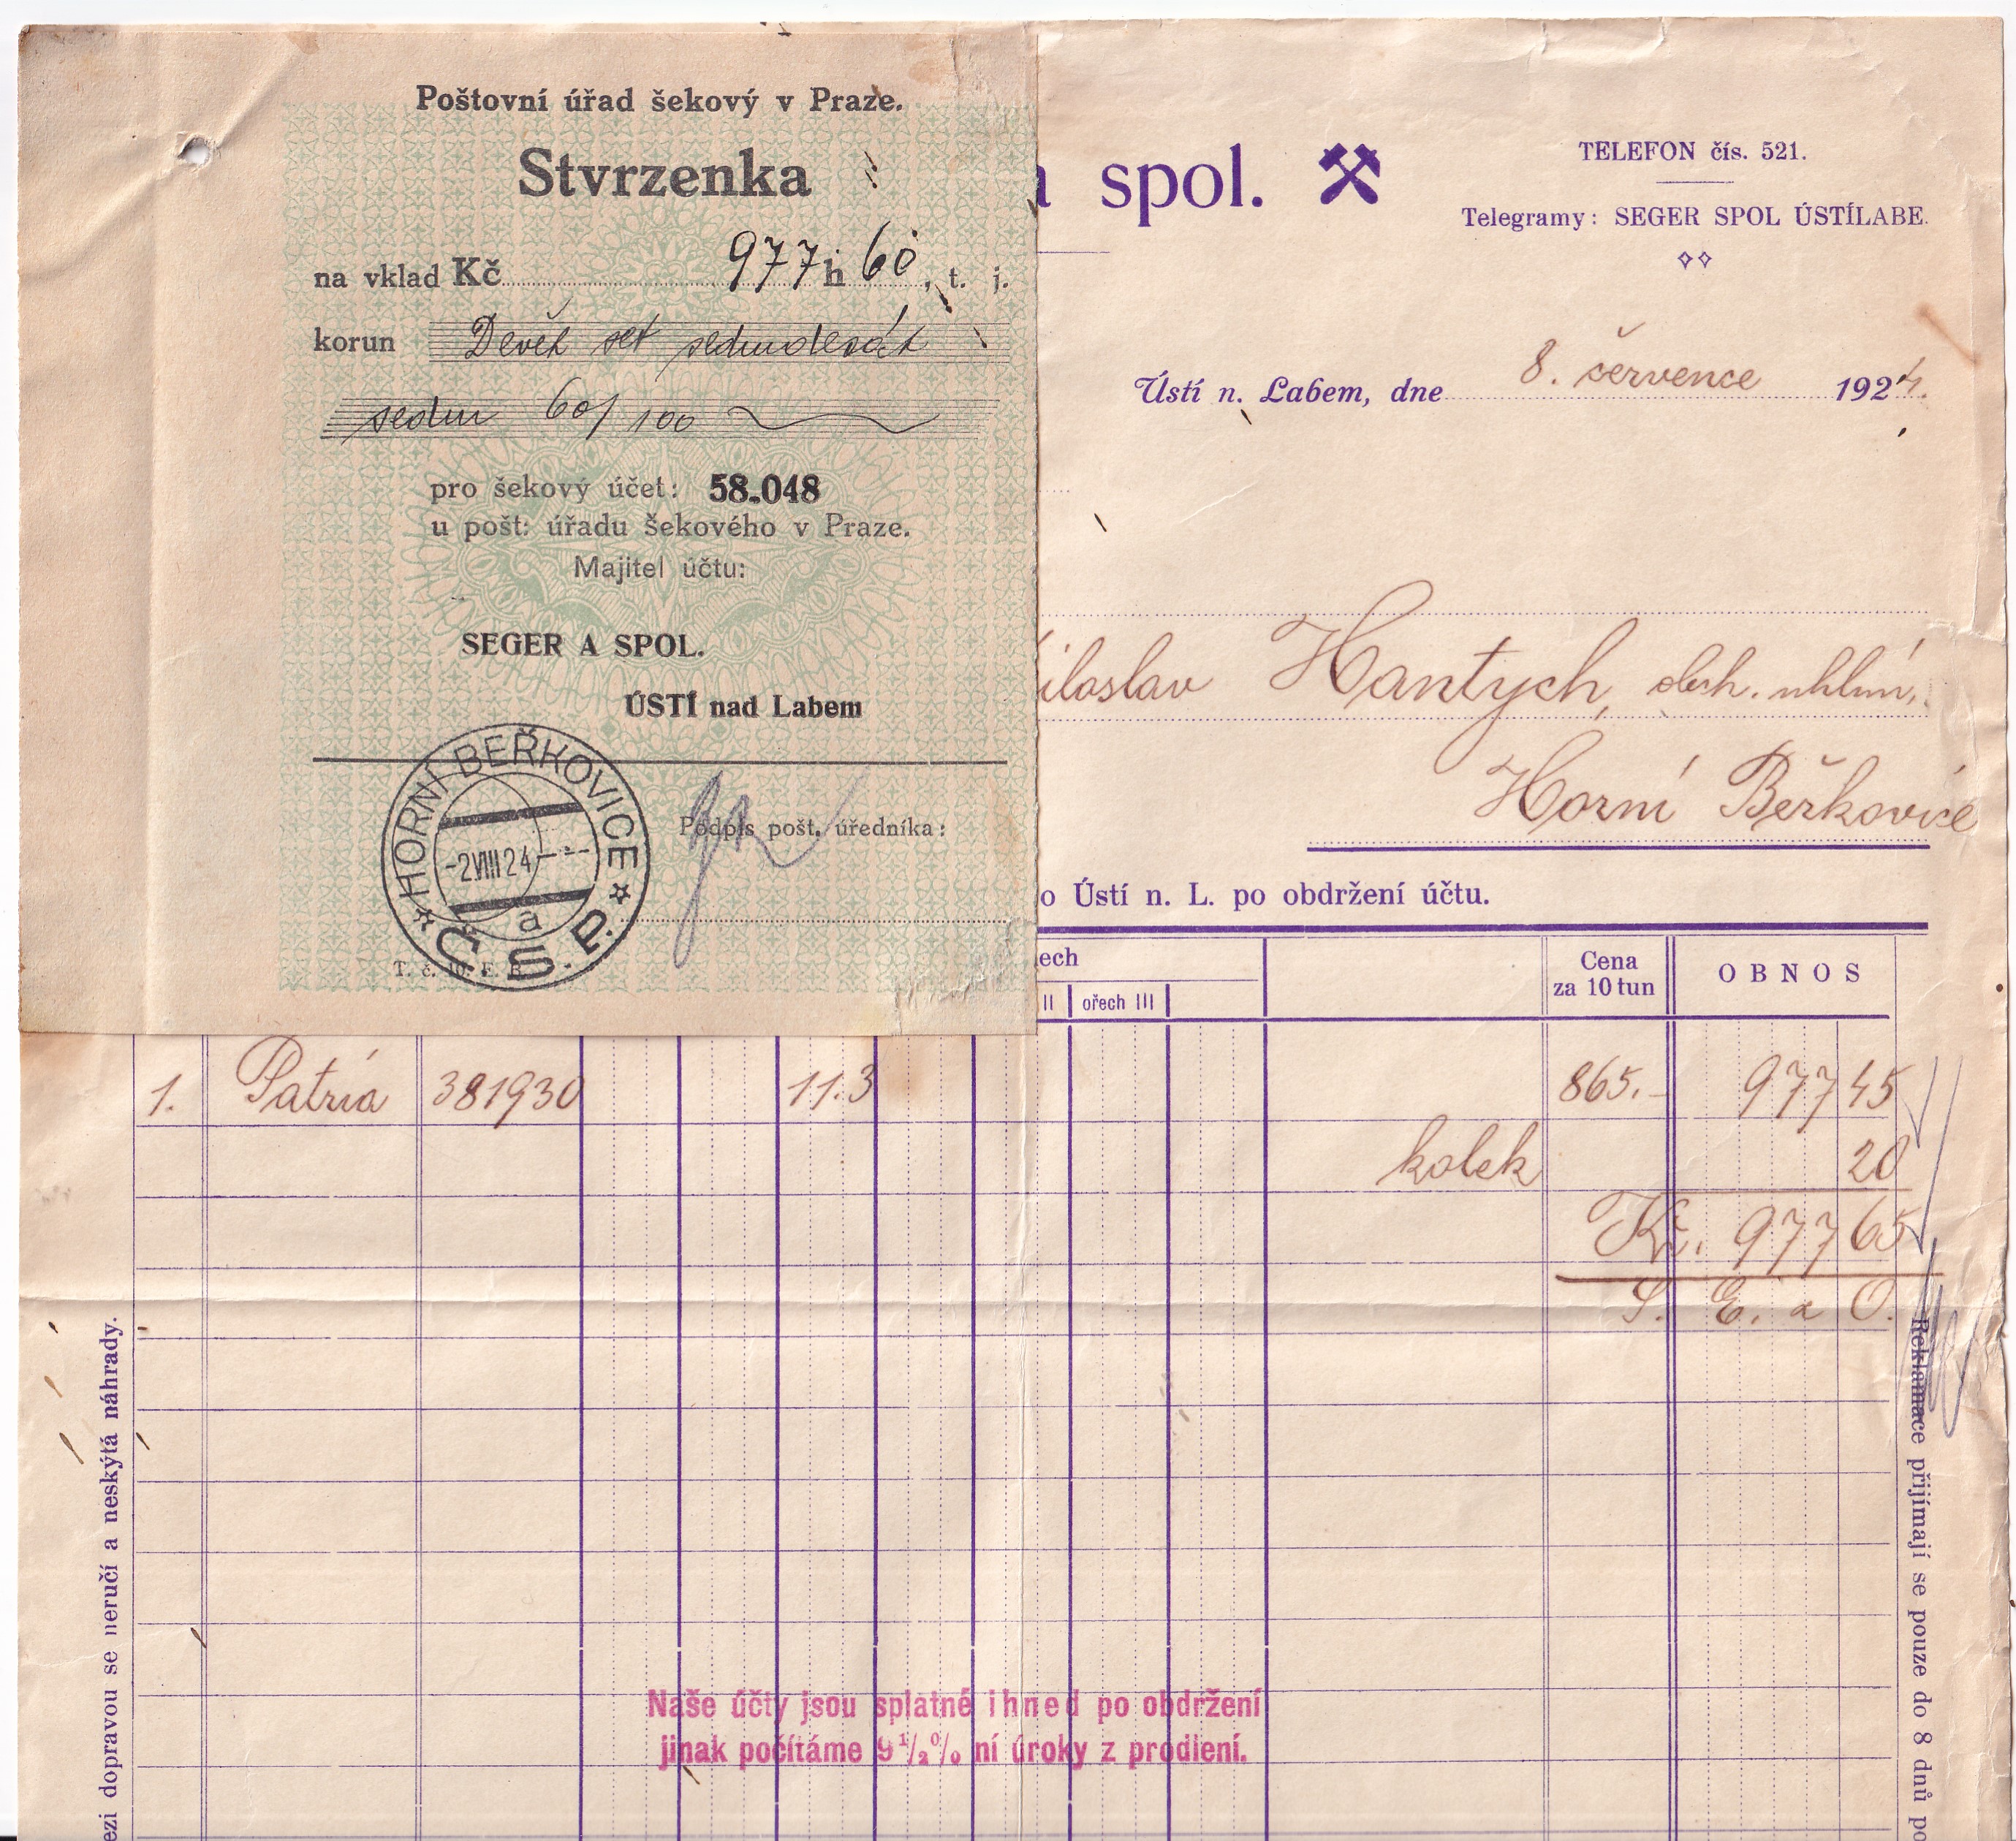 Poštovní úřad šekový v Praze.
Stvrzenka
na vklad Kč 977 h 60, t. j.
korun Devět set sedmdesát
sedm 60/100
pro šekový účet: 58.048
u pošt. úřadu šekového v Praze.
Majitel účtu:
SEGER A SPOL.
ÚSTÍ nad Labem
HORNÍ BEŘKOVICE
-2.VIII 24
a
Č.S.P.
Podpis pošt. úředníka:
T. č. 10.
a spol.
TELEFON čís. 521.
Telegramy: SEGER SPOL ÚSTÍLABE.
Ústí n. Labem, dne 8. července 1924.
iloslav Hantych, obch. uhlím,
Horní Beřkovice
o Ústí n. L. po obdržení účtu.
ech
II ořech III
Cena
za 10 tun
OBNOS
1. Patria 381930 11.3 865.- 977 45
kolek 20
Kč. 977 65
S. E. a O.
ezi dopravou se neručí a neskýtá náhrady.
Reklamace přijímají se pouze do 8 dnů po
Naše účty jsou splatné ihned po obdržení
jinak počítáme 9 1/2 % ní úroky z prodlení.